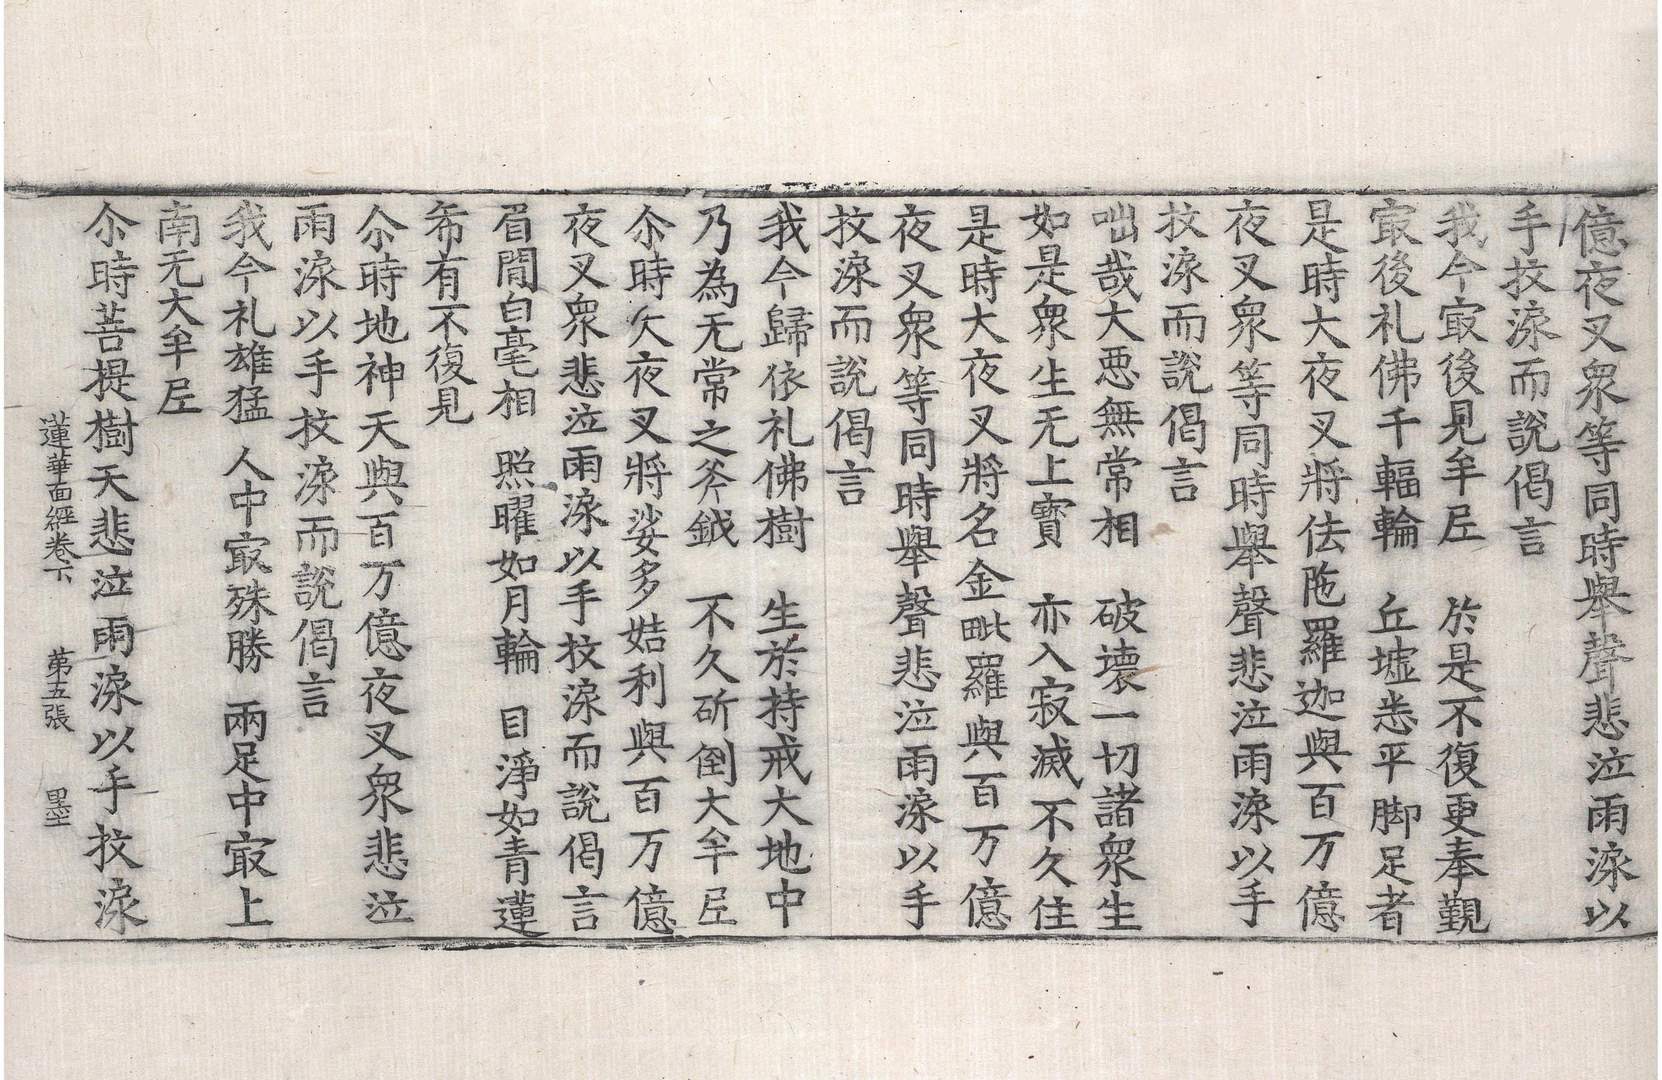 億夜叉衆等同時舉聲悲泣雨淚以
手抆淚而說偈言
我今㝡後見牟尼　於是不復更奉覲
㝡後礼佛千輻輪　丘墟悉平脚足者
是時大夜叉將佉陁羅迦與百万億
夜叉衆等同時舉聲悲泣雨淚以手
抆淚而說偈言
咄哉大惡無常相　破壞一切諸衆生
如是衆生无上寳　亦入寂滅不久住
是時大夜叉將名金毗羅與百万億
夜叉衆等同時舉聲悲泣雨淚以手
抆淚而說偈言
我今歸依礼佛樹　生於持戒大地中
乃為无常之斧鉞　不久斫倒大牟尼
尒時大夜叉將娑多姞利與百万億
夜叉衆悲泣雨淚以手抆淚而說偈言
眉間白毫相　照曜如月輪　目淨如青蓮
希有不復見
尒時地神天與百万億夜叉衆悲泣
雨淚以手抆淚而說偈言
我今礼雄猛　人中㝡殊勝　兩足中㝡上
南无大牟尼
尒時菩提樹天悲泣雨淚以手抆淚
蓮華面經卷下　第五張　墨